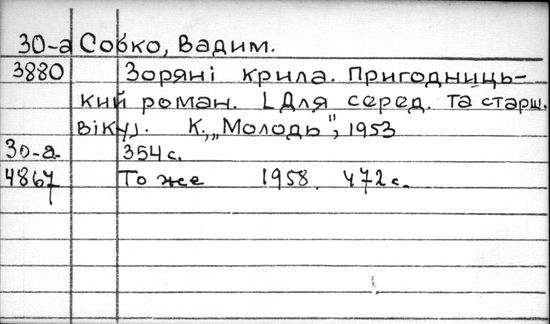 30-а Собко, Вадим.
3880 Зоряні крила. Пригодниць-
кий роман. [Для серед. та старш.
віку]. К., "Молодь", 1953
30-а 354 с.
4867 То же 1958. 472 с.